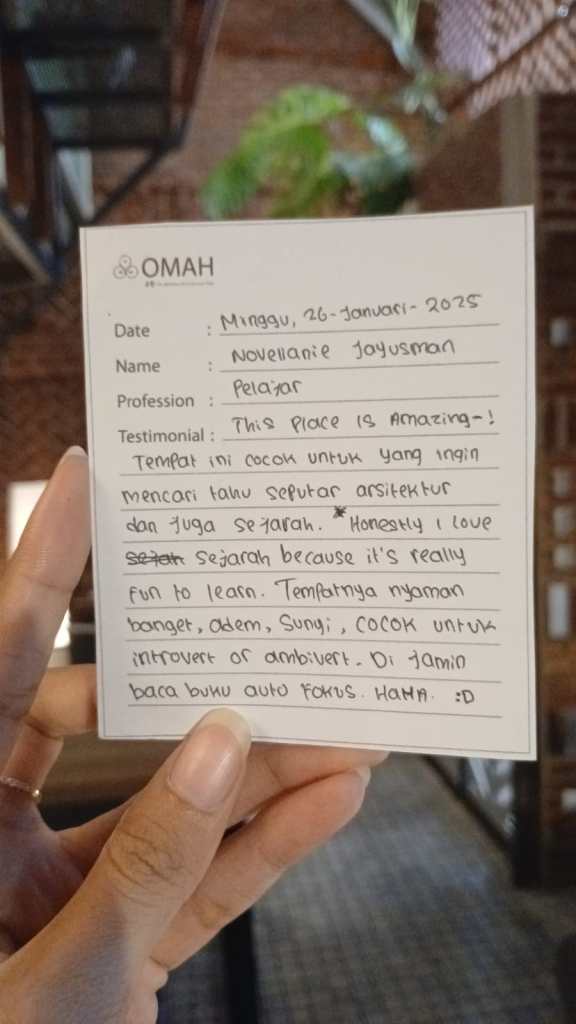 OMAH
Date : Minggu, 26-Januari-2025
Name : Novellanie Jayusman
Profession : Pelajar
Testimonial : This place is Amazing~!
Tempat ini cocok untuk yang ingin
mencari tahu seputar arsitektur
dan juga sejarah. *Honestly i love
sejah sejarah because it's really
fun to learn. Tempatnya nyaman
banget, adem, sunyi, cocok untuk
introvert or ambivert. Di jamin
baca buku auto fokus. HaHA. :D